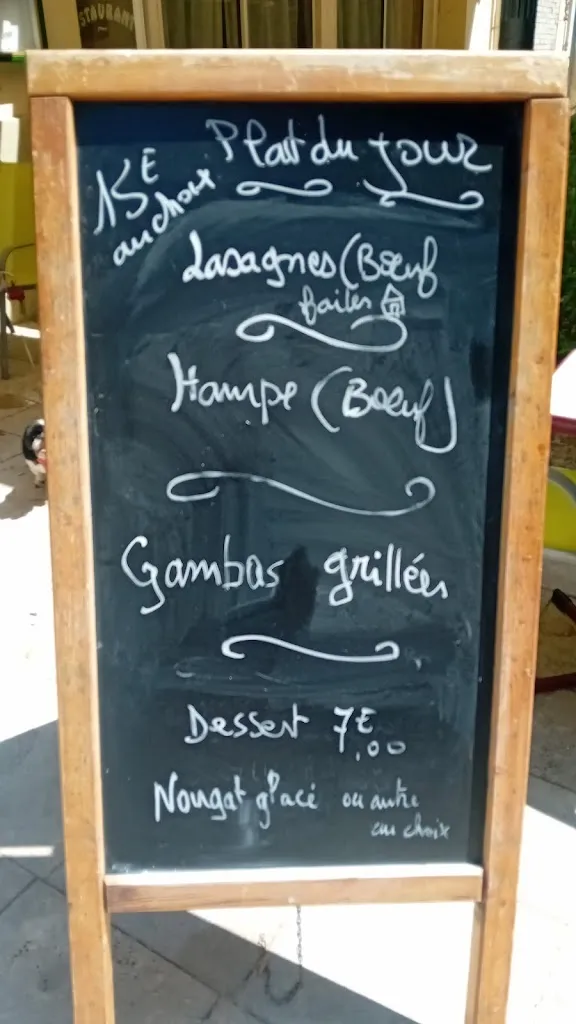 STAURANT
Plat du jour
15€
au choix
Lasagnes (Bœuf
faites
Hampe (Bœuf)
Gambas grillées
Dessert 7€,00
Nougat glacé ou autre
au choix